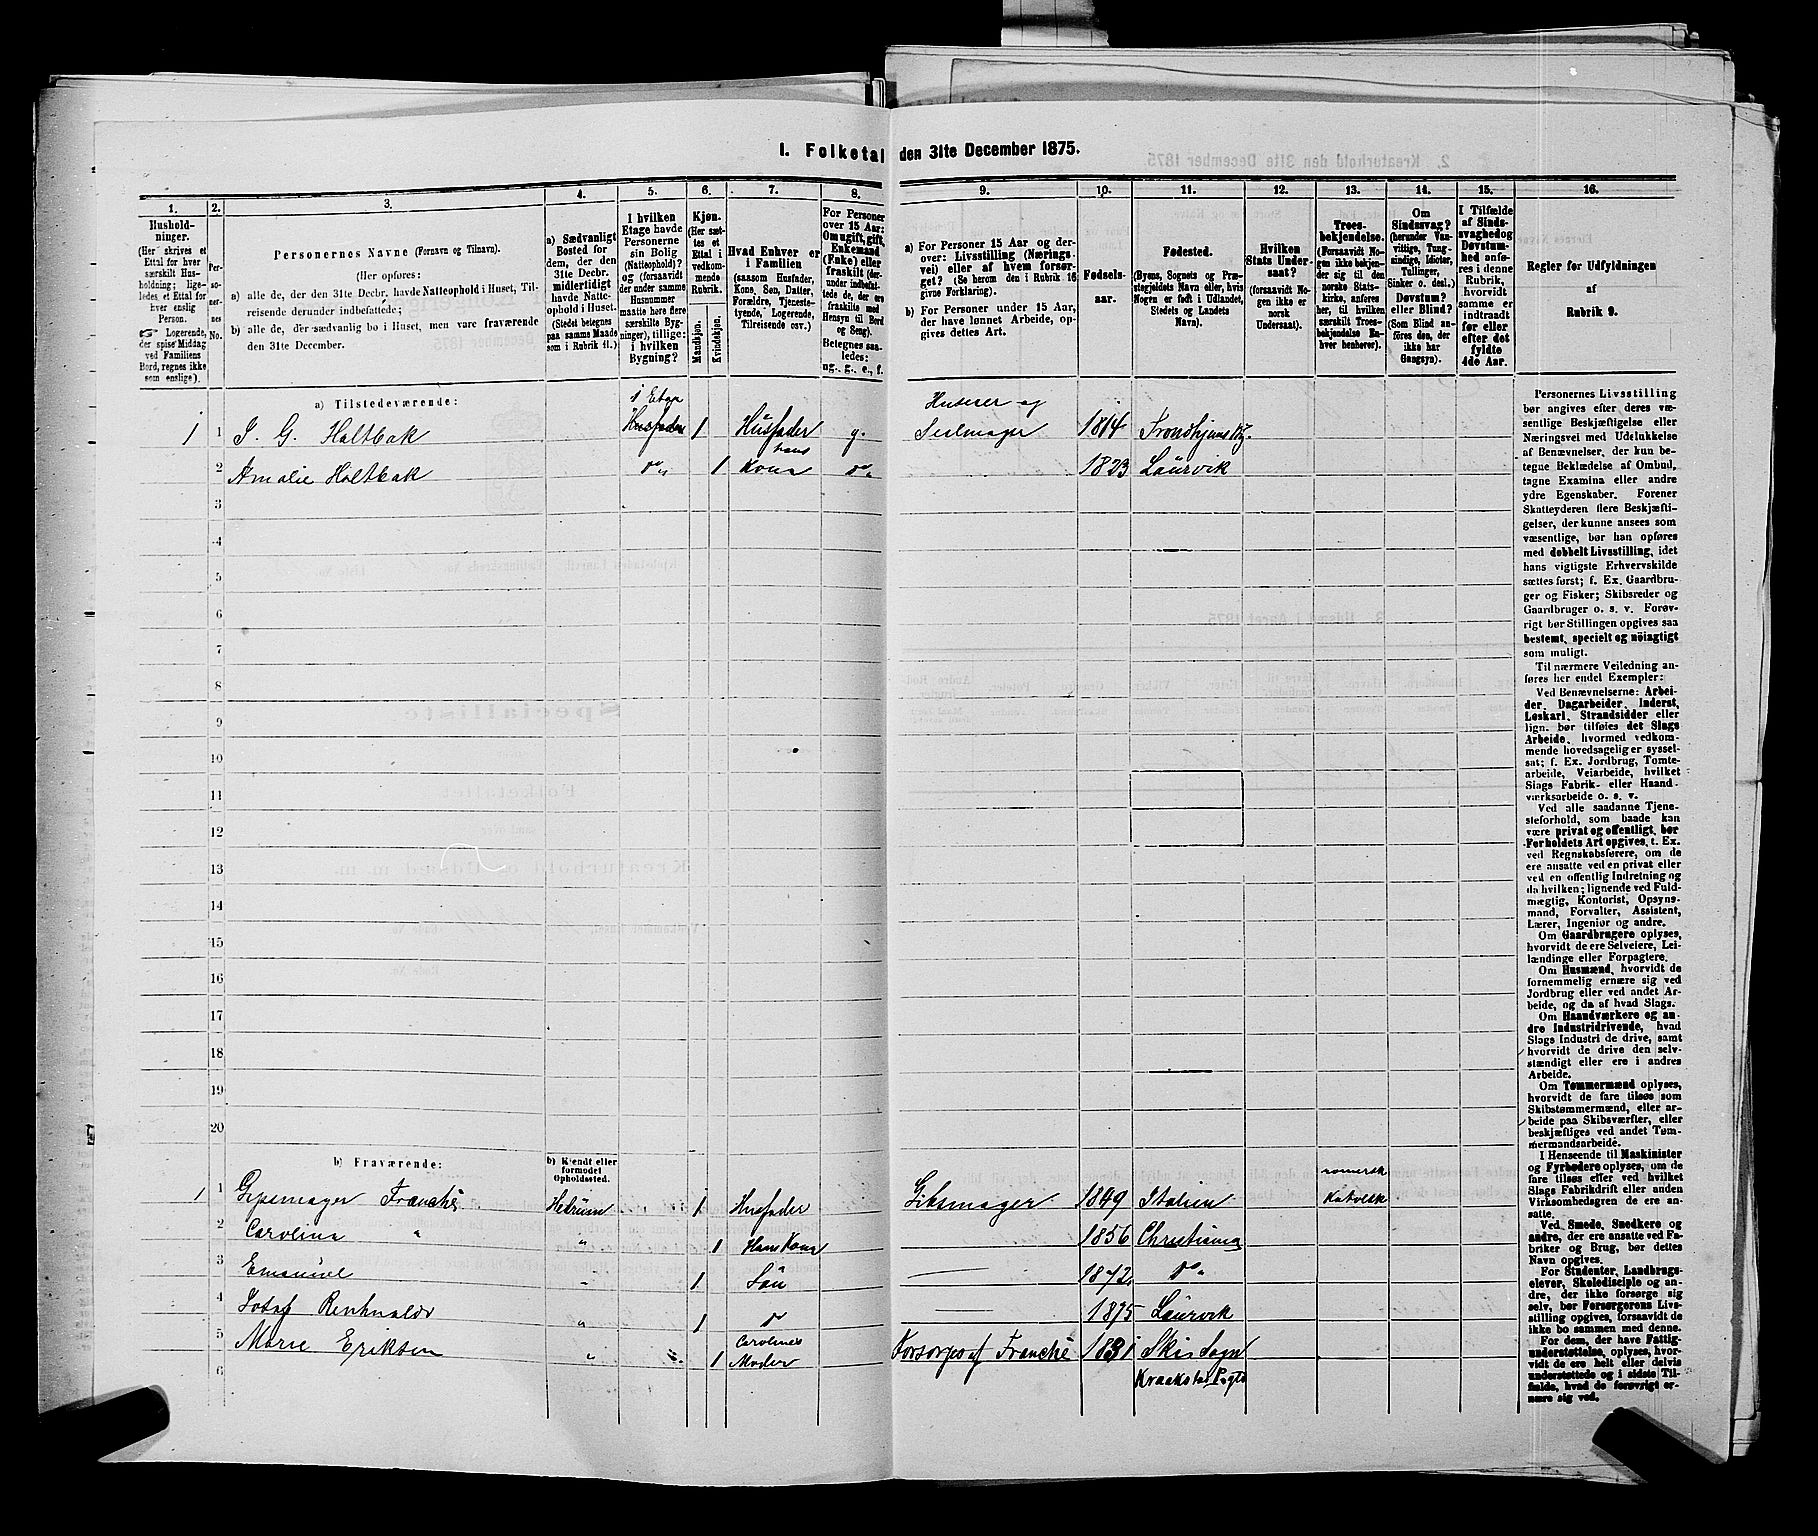 I. Folketal den 31te December 1875.
1. 2. 3. 4. 5. 6. 7. 8. 9. 10. 11. 12. 13. 14. 15. 16.
Hushold-
ninger.
(Her skrives et
Ettal for hver
særskilt Hus-
holdning; lige-
ledes et Ettal for
hver enslig
Person.
☞ Logerende,
der spise Middag
ved Familiens
Bord, regnes ikke
som enslige).
Per-
so-
ner-
nes
No.
Personernes Navne (Fornavn og Tilnavn).
(Her opføres:
a) alle de, der den 31te Decbr. havde Natteophold i Huset, Til-
reisende derunder indbefattede;
b) alle de, der sædvanlig bo i Huset, men vare fraværende
den 31te December.
a) Sædvanligt
Bosted for
dem, der den
31te Decbr.
midlertidigt
havde Natte-
ophold i Huset.
(Stedet betegnes
paa samme Maade
som i Rubrik 11.)
I hvilken
Etage havde
Personerne
sin Bolig
(Natteophold)?
(forsaavidt
der under samme
Husnummer
maatte høre flere
særskilte Byg-
ninger), tillige:
i hvilken
Bygning?
Kjøn.
(Her sæt-
tes et
Ettal i
vedkom-
mende
Rubrik.
Mandskjøn.
Kvindekjøn.
Hvad Enhver er
i Familien
(saasom Husfader,
Kone, Søn, Datter,
Forældre, Tjeneste-
tyende, Logerende,
Tilreisende osv.)
For Personer
over 15 Aar:
Om ugift, gift,
Enkemand
(Enke) eller
fraskilt (der-
under indbefat-
tede de, der ere
fraskilte med
Hensyn til Bord
og Seng).
Betegnes saa-
ledes:
ug., g., e., f.
a) For Personer 15 Aar og der-
over: Livsstilling (Nærings-
vei) eller af hvem forsør-
get? (Se herom den i Rubrik 16
givne Forklaring).
b) For Personer under 15 Aar,
der have lønnet Arbeide, op-
gives dettes Art.
Fødsels-
aar.
Fødested.
(Byens, Sognets og Præ-
stegjeldets Navn eller, hvis
Nogen er født i Udlandet,
Stedets og Landets
Navn).
Hvilken
Stats Under-
saat?
(forsaavidt No-
gen ikke er
norsk
Undersaat).
Troes-
bekjendelse.
(Forsaavidt No-
gen ikke bekjen-
der sig til den
norske Stats-
kirke, anføres
her, til hvilken
særskilt Troes-
bekjendelse En-
hver henhører).
Om
Sindssvag?
(herunder Van-
vittige, Tung-
sindige, Idioter,
Tullinger,
Sinker o. desl.)
Døvstum?
eller Blind?
(Som Blind an-
føres den, der
ikke har
Gangsyn).
I Tilfælde
af Sinds-
svaghed og
Døvstum-
hed anfø-
res i denne
Rubrik,
hvorvidt
samme er
indtraadt
før eller
efter det
fyldte
4de Aar.
Regler for Udfyldningen
af
Rubrik 9.
a) Tilstedeværende:
1 Etage Huseier og
1 1 J. G. Holtbak Husfader 1 Husfader g. Seilmager 1814 Trondhjems By.
2 Amalie Holtbak do „ 1 hans Kone do „ 1823 Laurvik
3
4
5
6
7
8
9
10
11
12
13
14
15
16
17
18
19
20
b) Fraværende:
b) Kjendt eller
formodet
Opholdssted.
1 1 Gipsmager Franché Hedrum 1 Husfader Gibsmager 1849 Italien romersk Katolsk
2 Carolina „ „ 1 Hans Kone 1856 Christiania
3 Emanuel „ 1 Søn 1872 do „
4 „ 1 do 1875 Laurvik
5 Marie Eriksen „ 1 Carolines Moder Forsørges af Franché 1831 Ski Sogn
6 Kraakstad Pgld
Personernes Livsstilling
bør angives efter deres væ-
sentlige Beskjæftigelse eller
Næringsvei med Udelukkelse
af Benævnelser, der kun be-
tegne Beklædelse af Ombud,
tagne Examina eller andre
ydre Egenskaber. Forener
Skatteyderen flere Beskjæfti-
gelser, der kunne ansees som
væsentlige, bør han opføres
med dobbelt Livsstilling, idet
hans vigtigste Erhvervskilde
sættes først; f. Ex. Gaardbru-
ger og Fisker; Skibsreder og
Gaardbruger o. s. v. Forøv-
rigt bør Stillingen opgives saa
bestemt, specielt og nöiagtigt
som muligt.
Til nærmere Veiledning an-
føres her endel Exempler:
Ved Benævnelserne: Arbei-
der, Dagarbeider, Inderst,
Løskarl, Strandsidder eller
lign. bør tilføies det Slags
Arbeide, hvormed vedkom-
mende hovedsagelig er syssel-
sat; f. Ex. Jordbrug, Tomte-
arbeide, Veiarbeide, hvilket
Slags Fabrik- eller Haand-
værksarbeide o. s. v.
Ved alle saadanne Tjene-
steforhold, som baade kan
være privat og offentligt, bør
Forholdets Art opgives, f. Ex.
ved Regnskabsførere, om de
ere ansatte ved en privat eller
ved en offentlig Indretning og
da hvilken; lignende ved Fuld-
mægtig, Kontorist, Opsyns-
mand, Forvalter, Assistent,
Lærer, Ingeniør og andre.
Om Gaardbrugere oplyses,
hvorvidt de ere Selveiere, Lei-
lændinge eller Forpagtere.
Om Husmænd, hvorvidt de
fornemmelig ernære sig ved
Jordbrug eller ved andet Ar-
beide, og da af hvad Slags.
Om Haandværkere og an-
dre Industridrivende, hvad
Slags Industri de drive, samt
hvorvidt de drive den selv-
stændigt eller ere i andres
Arbeide.
Om Tømmermænd oplyses,
hvorvidt de fare tilsøs som
Skibstømmermænd, eller ar-
beide paa Skibsværfter, eller
beskjæftiges ved andet Tøm-
mermandsarbeide.
I Henseende til Maskinister
og Fyrbødere oplyses, om de
fare tilsøs eller ved hvilket
Slags Fabrikdrift eller anden
Virksomhedsgren de ere an-
satte.
Ved Smede, Snedkere og
andre, der ere ansatte ved Fa-
briker og Brug, bør dettes
Navn opgives.
For Studenter, Landbrugs-
elever, Skoledisciple og an-
dre, der ikke forsørge sig
selv, bør Forsørgerens Livs-
stilling opgives, forsaavidt de
ikke bo sammen med denne.
For dem, der have Fattig-
understøttelse, oplyses, hvor-
vidt de ere helt eller delvis
understøttede og i sidste Til-
fælde, hvad de forøvrigt er-
nære sig ved.